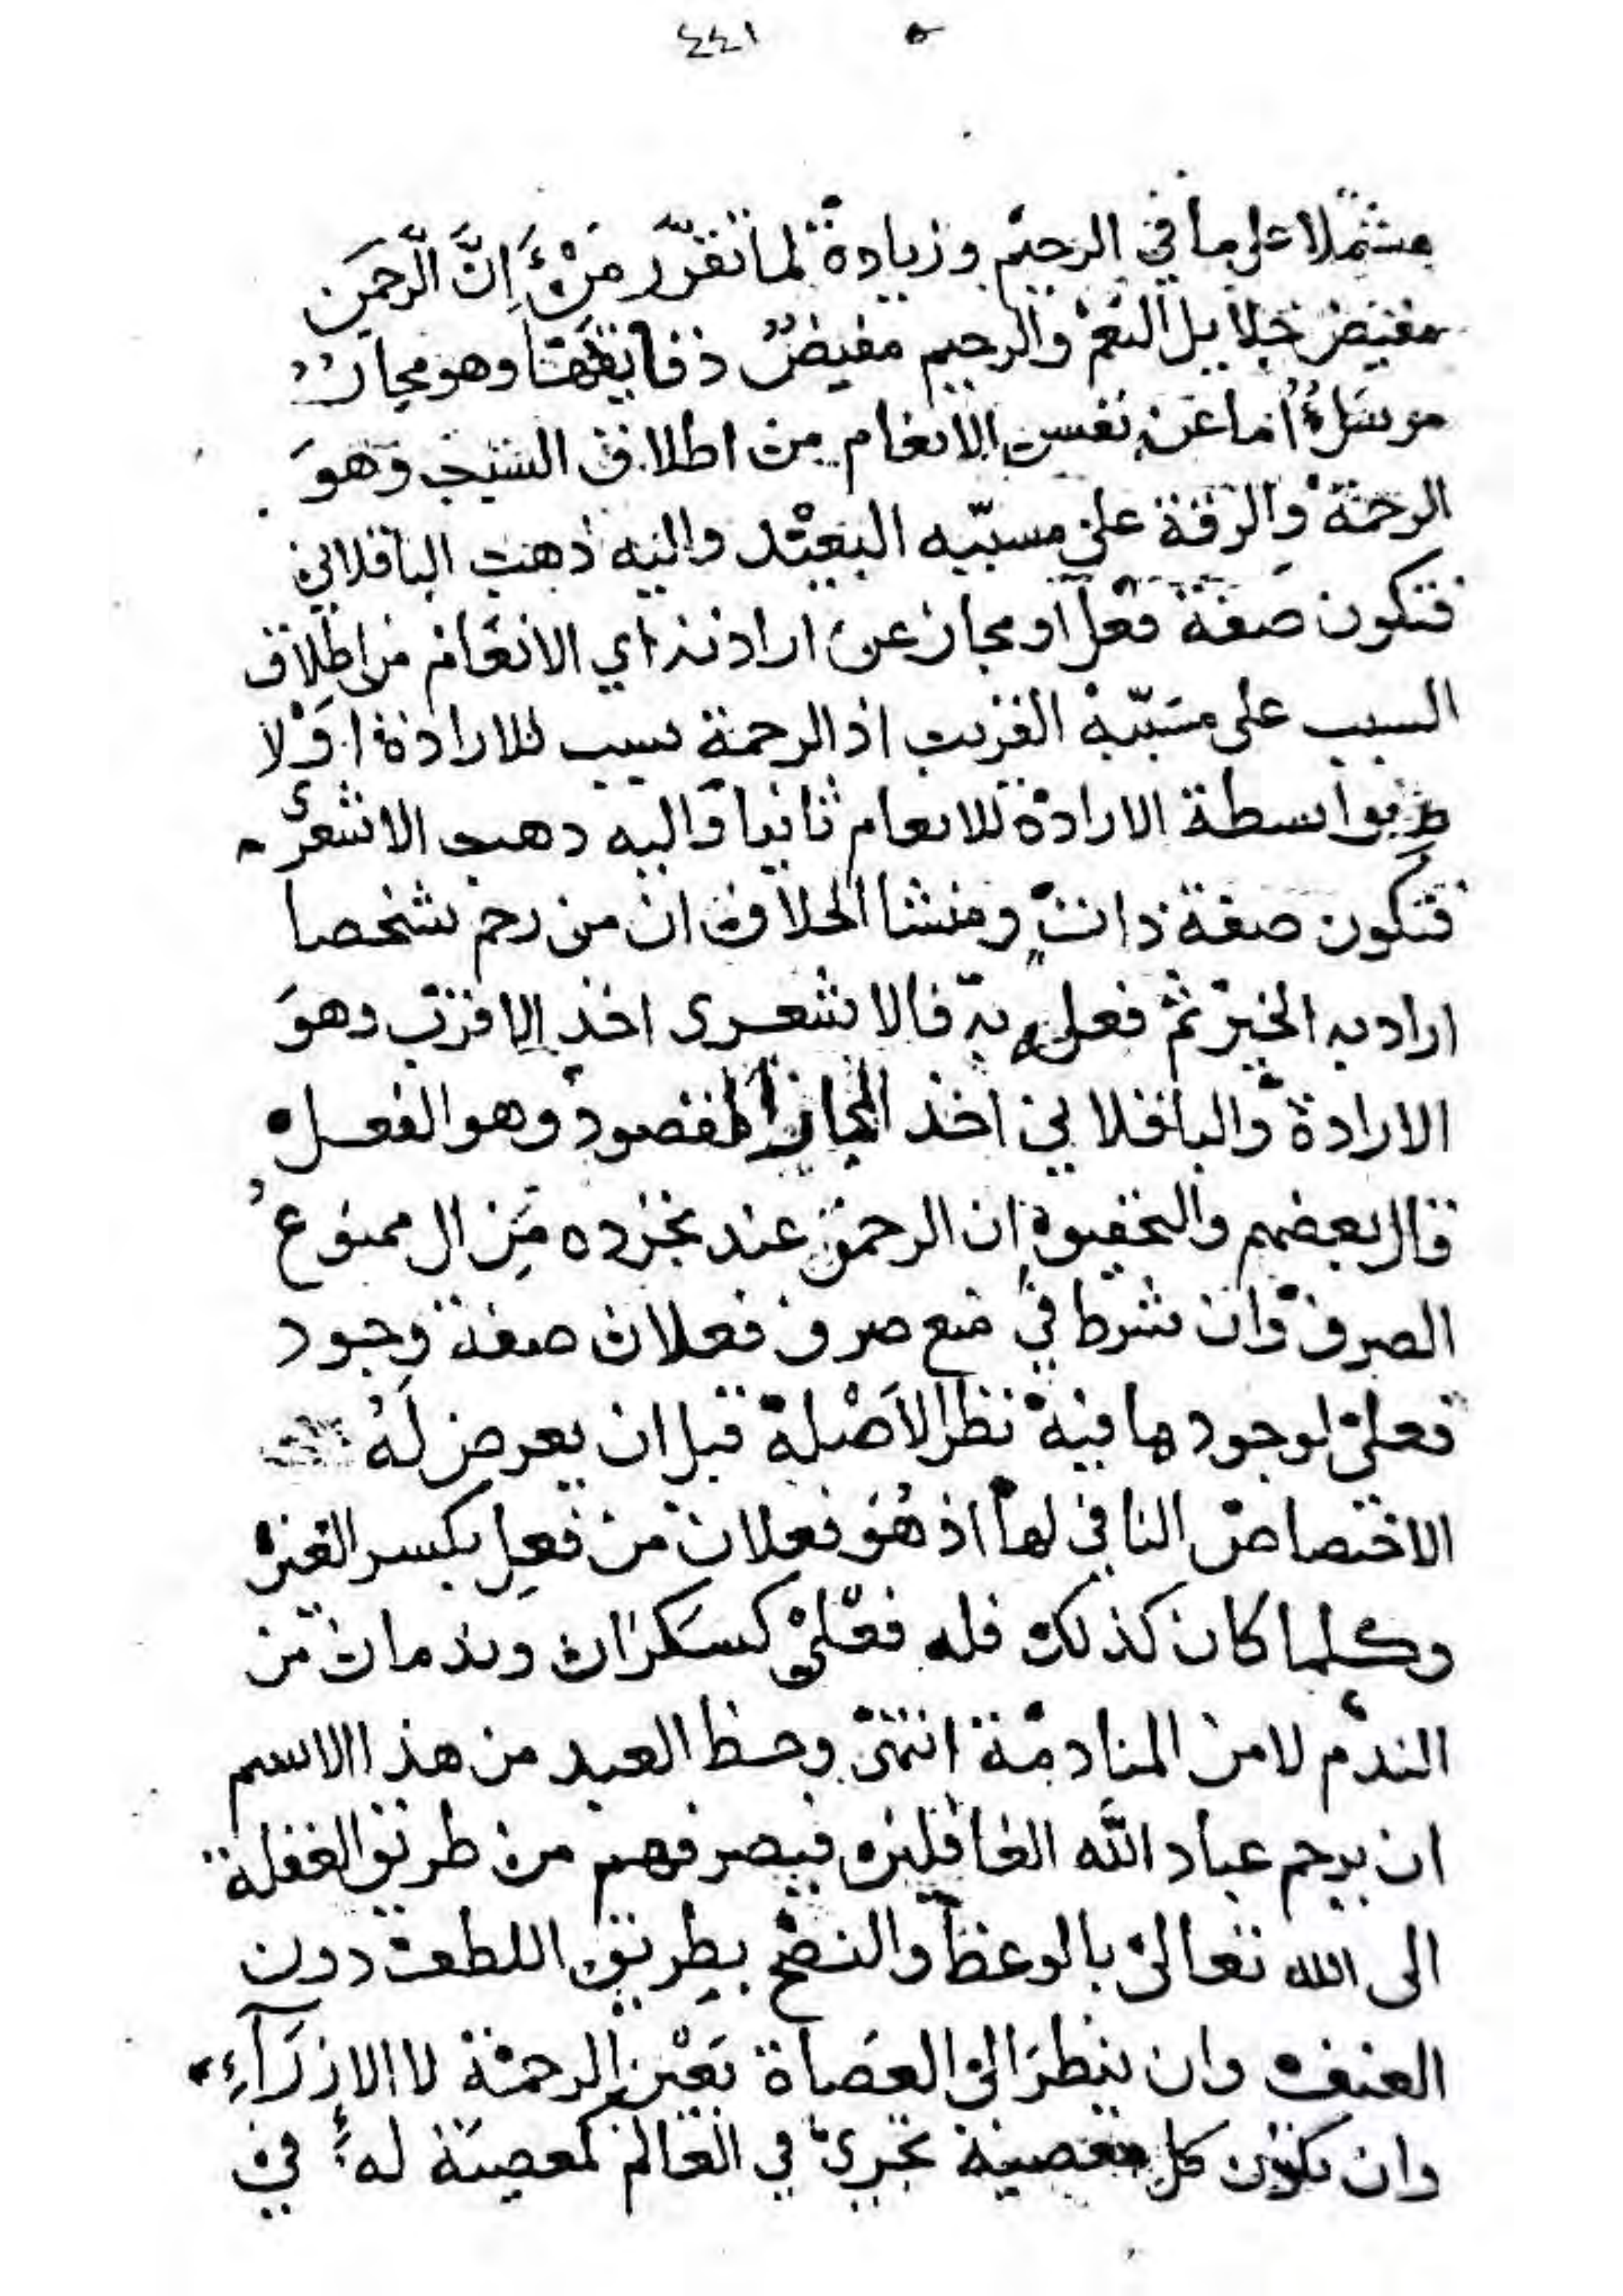 ٥ ٤٤١
مشتملا على ما في الرحيم وزيادة لما تقرر من ان الرحمن
مفيض جلايل النعم والرحيم مفيض دقايقها وهو مجاز
مرسل اما عن نفس الانعام من اطلاق السبب وهو
الرحمة والرقة على مسببه البعيد واليه ذهب الباقلاني
فتكون صفة فعل او مجاز عن ارادته اي الانعام من اطلاق
السبب على مسببه القريب اذ الرحمة سبب للارادة اولا
بواسطة الارادة للانعام ثانيا واليه ذهب الاشعري
فتكون صفة ذات ومنشا الخلاف ان من رحم شخصا
اراد به الخير ثم فعله به فالاشعرى اخذ الاقرب وهو
الارادة والباقلاني اخذ المجاز المقصود وهو الفعل
قال بعضهم والتحقيق ان الرحمن عند تجرده من ال ممنوع
الصرف وان شرط في منع صرف فعلان صفة وجود
فعلى لوجودها فيه نظر الاصله قبل ان يعرض له
الاختصاص النافي لها اذ هو فعلان من فعل بكسر العين
وكلما كان كذلك فله فعلى كسكران وندمان من
الندم لا من المنادمة انتهى وحظ العبد من هذا الاسم
ان يرحم عباد الله الغافلين فيصرفهم من طريق الغفلة
الى الله تعالى بالوعظ والنصح بطريق اللطف دون
العنف وان ينظر الى العصاة بعين الرحمة لا الازرآء
وان تكون كل معصية تجري في العالم كمعصية له في